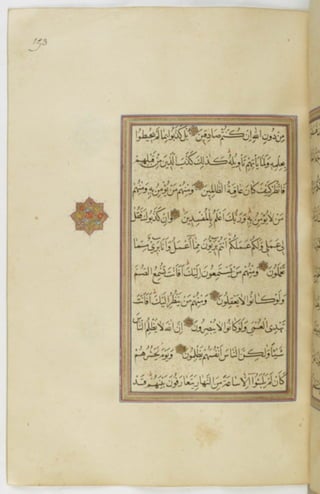 مِنْ دُونِ اللهِ اِنْ كُنْتُمْ صَادِقِينَ بَلْ كَذَّبُوا بِمَا لَمْ يُحِيطُوا
بِعِلْمِهِ وَلَمَّا يَأْتِهِمْ تَأْوِيلُهُ كَذٰلِكَ كَذَّبَ الَّذِينَ مِنْ قَبْلِهِمْ
فَانْظُرْ كَيْفَ كَانَ عَاقِبَةُ الظَّالِمِينَ وَمِنْهُمْ مَنْ يُؤْمِنُ بِهِ وَمِنْهُمْ
مَنْ لَا يُؤْمِنُ بِهِ وَرَبُّكَ اَعْلَمُ بِالْمُفْسِدِينَ وَاِنْ كَذَّبُوكَ فَقُلْ
لِي عَمَلِي وَلَكُمْ عَمَلُكُمْ اَنْتُمْ بَرِيئُونَ مِمَّا اَعْمَلُ وَاَنَا بَرِيءٌ مِمَّا
تَعْمَلُونَ وَمِنْهُمْ مَنْ يَسْتَمِعُونَ اِلَيْكَ اَفَاَنْتَ تُسْمِعُ الصُّمَّ
وَلَوْ كَانُوا لَا يَعْقِلُونَ وَمِنْهُمْ مَنْ يَنْظُرُ اِلَيْكَ اَفَاَنْتَ
تَهْدِي الْعُمْيَ وَلَوْ كَانُوا لَا يُبْصِرُونَ اِنَّ اللهَ لَا يَظْلِمُ النَّاسَ
شَيْئًا وَلٰكِنَّ النَّاسَ اَنْفُسَهُمْ يَظْلِمُونَ وَيَوْمَ يَحْشُرُهُمْ
كَاَنْ لَمْ يَلْبَثُوا اِلَّا سَاعَةً مِنَ النَّهَارِ يَتَعَارَفُونَ بَيْنَهُمْ قَدْ